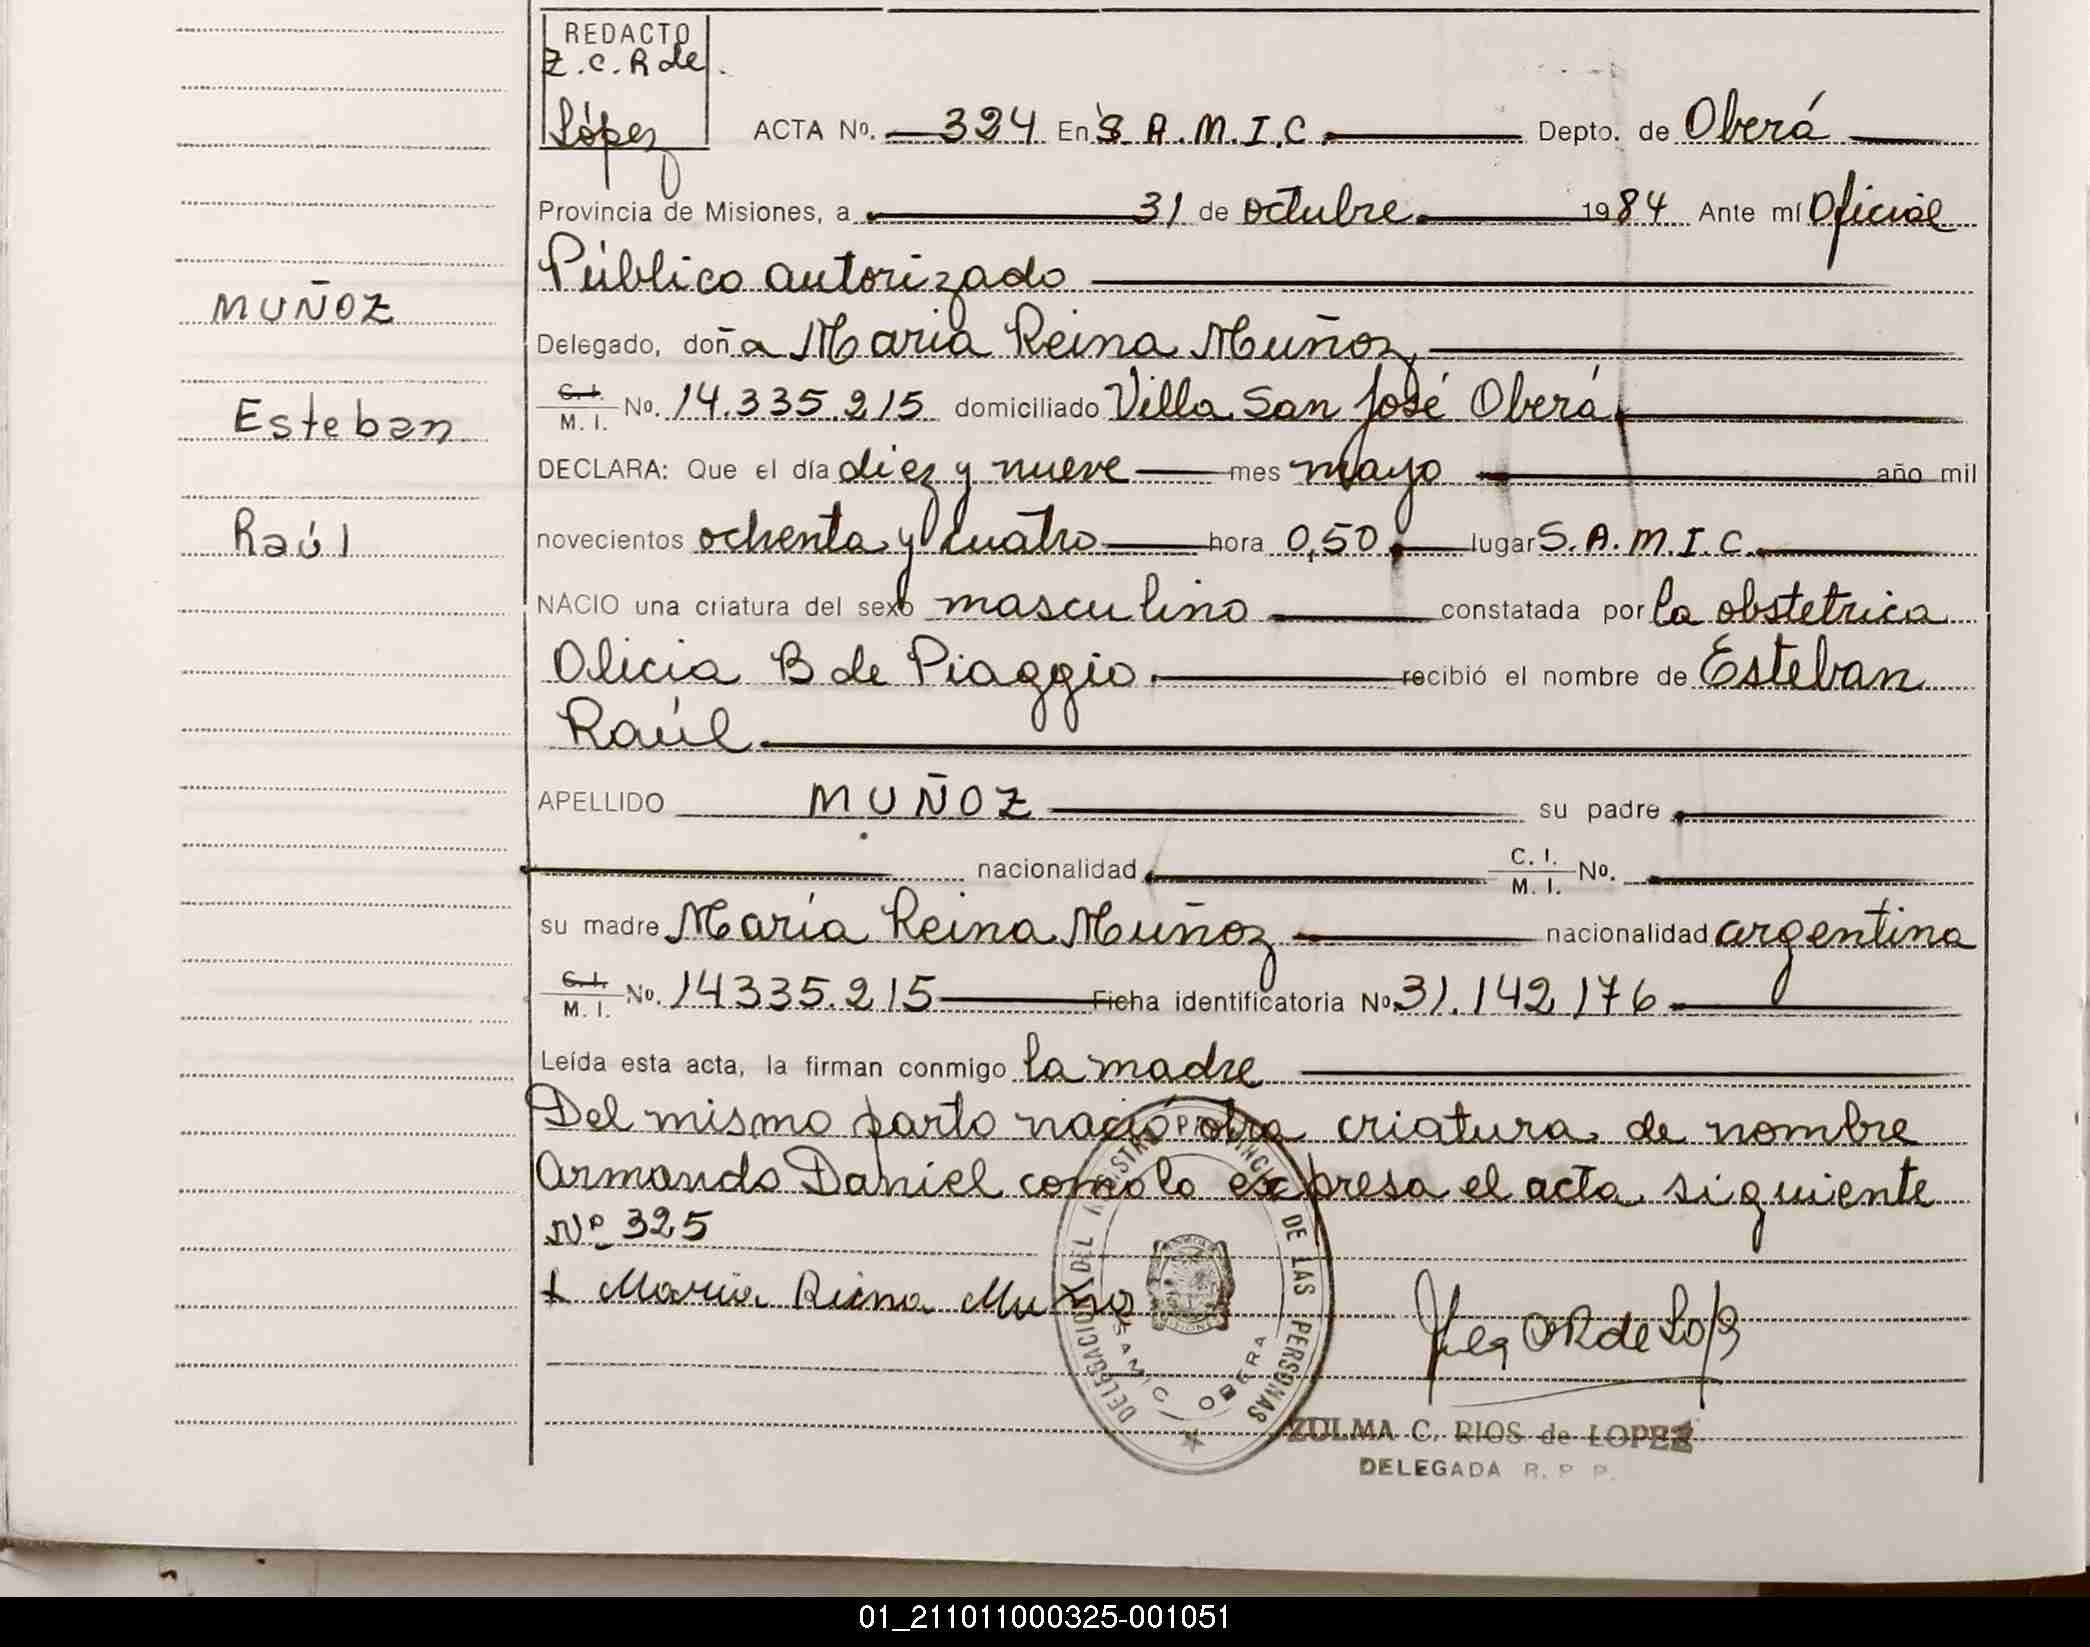 REDACTO
Z.C.R de
López
ACTA No. 324 En S.A.M.I.C. Depto. de Oberá
Provincia de Misiones, a 31 de octubre 1984 Ante mí Oficial
Público autorizado
MUÑOZ
Delegado, doña Maria Reina Muñoz
C.I. M.I. No. 14.335.215 domiciliado Villa San José Oberá
Esteban
DECLARA: Que el día diez y nueve mes mayo año mil
novecientos ochenta y cuatro hora 0,50 lugar S.A.M.I.C.
Raúl
NACIO una criatura del sexo masculino constatada por la obstetrica
Olicia B de Piaggio recibió el nombre de Esteban
Raúl
APELLIDO MUÑOZ su padre
nacionalidad C.I. M.I. No.
su madre María Reina Muñoz nacionalidad argentina
C.I. M.I. No. 14335.215 Ficha identificatoria No 31.142,176
Leída esta acta, la firman conmigo la madre
Del mismo parto nació otra criatura de nombre
Armando Daniel como lo expresa el acta siguiente
Nº 325
Maria Reina Muñoz
DELEGACION DEL REGISTRO PROVINCIAL DE LAS PERSONAS
SAMIC OBERA
ZULMA C. RIOS de LOPEZ
DELEGADA R. P. P.
01_211011000325-001051